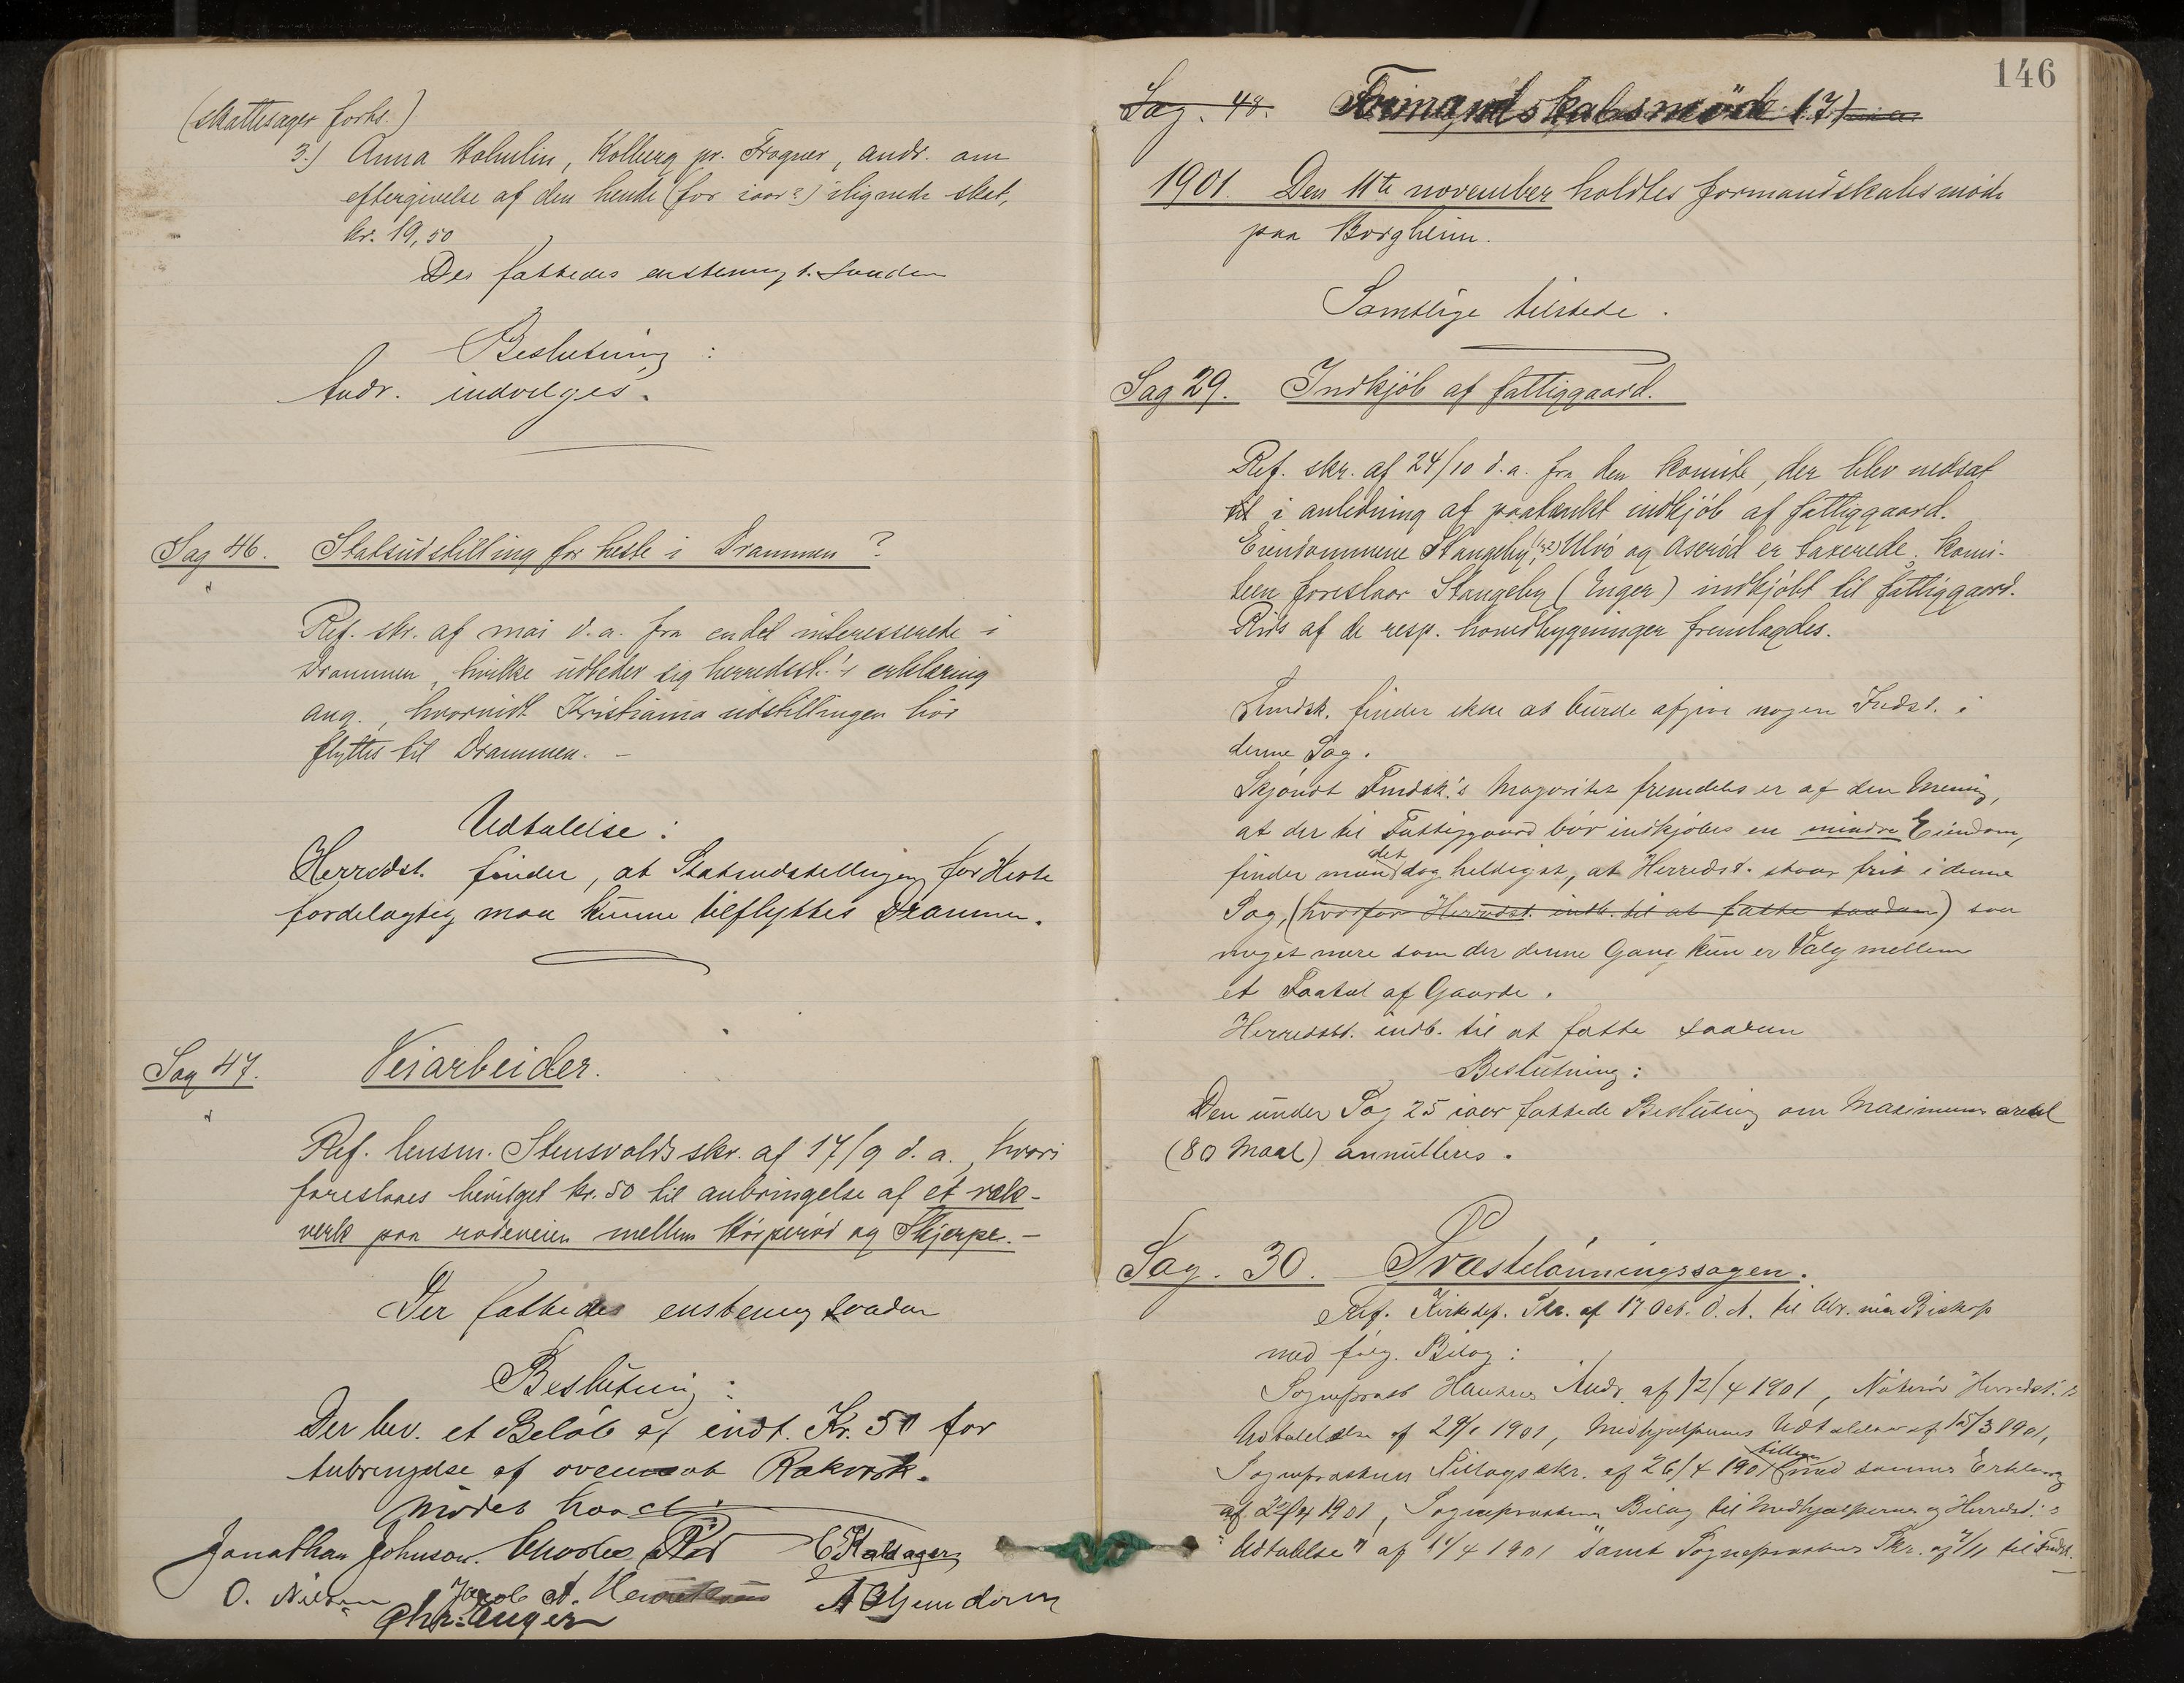 (skattesager forts.)
3.) Anna Holmlin, Kolberg pr. Frogner, andr. om
eftergivelse af den hende (for iaar?) ilignede skat,
kr. 19,50
Der fattedes enstemmig s. saadan
Beslutning :
Andr. indvilges.
Sag 46. Statsudstilling for heste i Drammen ?
Ref. skr. af mai d.a. fra endel interesserede i
Drammen, hvilke udbeder sig herredsst.'s erklæring
ang., hvorvidt Kristiania udstillingen bør
flyttes til Drammen. -
Udtalelse :
Herredst. finder, at Statsudstillingen for Heste
fordelagtig maa kunne tilflyttes Drammen.
Sag 47. Veiarbeider.
Ref. lensm. Stensvolds skr. af 17/9 d. a., hvori
foreslaaes bevilget kr. 50 til anbringelse af et ræk-
verk paa rodeveien mellem Høiperød og Skjerpe. -
Der fattedes enstemmig saadan
Beslutning :
Der bev. et Beløb af indt. Kr. 50 for
Anbringelse af ovennævnt Rækværk.
Mødet hævet.
Jonathan Johnson. Charles Rød C Skaldager
O. Nilsen Jacob A. Henriksen A Gjemdorm
Chr. Enger
146
Sag. 48. Formandskabsmöde (7)
1901. Den 11te november holdtes formandskabsmöde
paa Borgheim.
Samtlige tilstede.
Sag 29. Indkjöb af fattiggaard.
Ref. skr. af 24/10 d.a. fra den komite, der blev nedsat
til i anledning af paatænkt indkjöb af fattiggaard.
Eiendommene Stangeby, Ulvö og Aseröd er taxerede. Komi-
teen foreslaar Stangeby (Enger) indkjöbt til fattiggaard.
Rids af de resp. hovedbygninger fremlagdes.
Fmdsk. finder ikke at burde afgive nogen Indst. i
denne Sag.
Skjöndt Fmdsk.'s Majoritet fremdeles er af den Mening,
at der til Fattiggaard bör indkjöbes en mindre Eiendom,
finder man det dog heldigst, at Herredst. staar frit i denne
Sag, (hvorfor Herredst. indb. til at fatte saadan) saa
meget mere som der denne Gang kun er Valg mellem
et Faatal af Gaarde.
Herredsst. indb. til at fatte saadan
Beslutning :
Den under Sag 25 iaar fattede Beslutning om Maximums areal
(80 Maal) annulleres.
Sag. 30. Præstelönningssagen.
Ref. Kirkedep. Skr. af 17 Oct. d. A. til Biskop
med fölg. Bilag :
Sogneprest Hansens Andr. af 12/4 1901, Nöterö Herredst.'s
Udtalelse af 29/1 1901, Medhjælpernes Udtalelse af 15/3 1901,
Sogneprestens Tillægsskr. af 26/4 1901 tillige med sammes Erklæring
af 22/4 1901, Sogneprestens Bilag til Medhjælpernes og Herredst.'s
"Udtalelse" af 14/4 1901 samt Sogneprestens Skr. af 7/11 til Fmdsk.